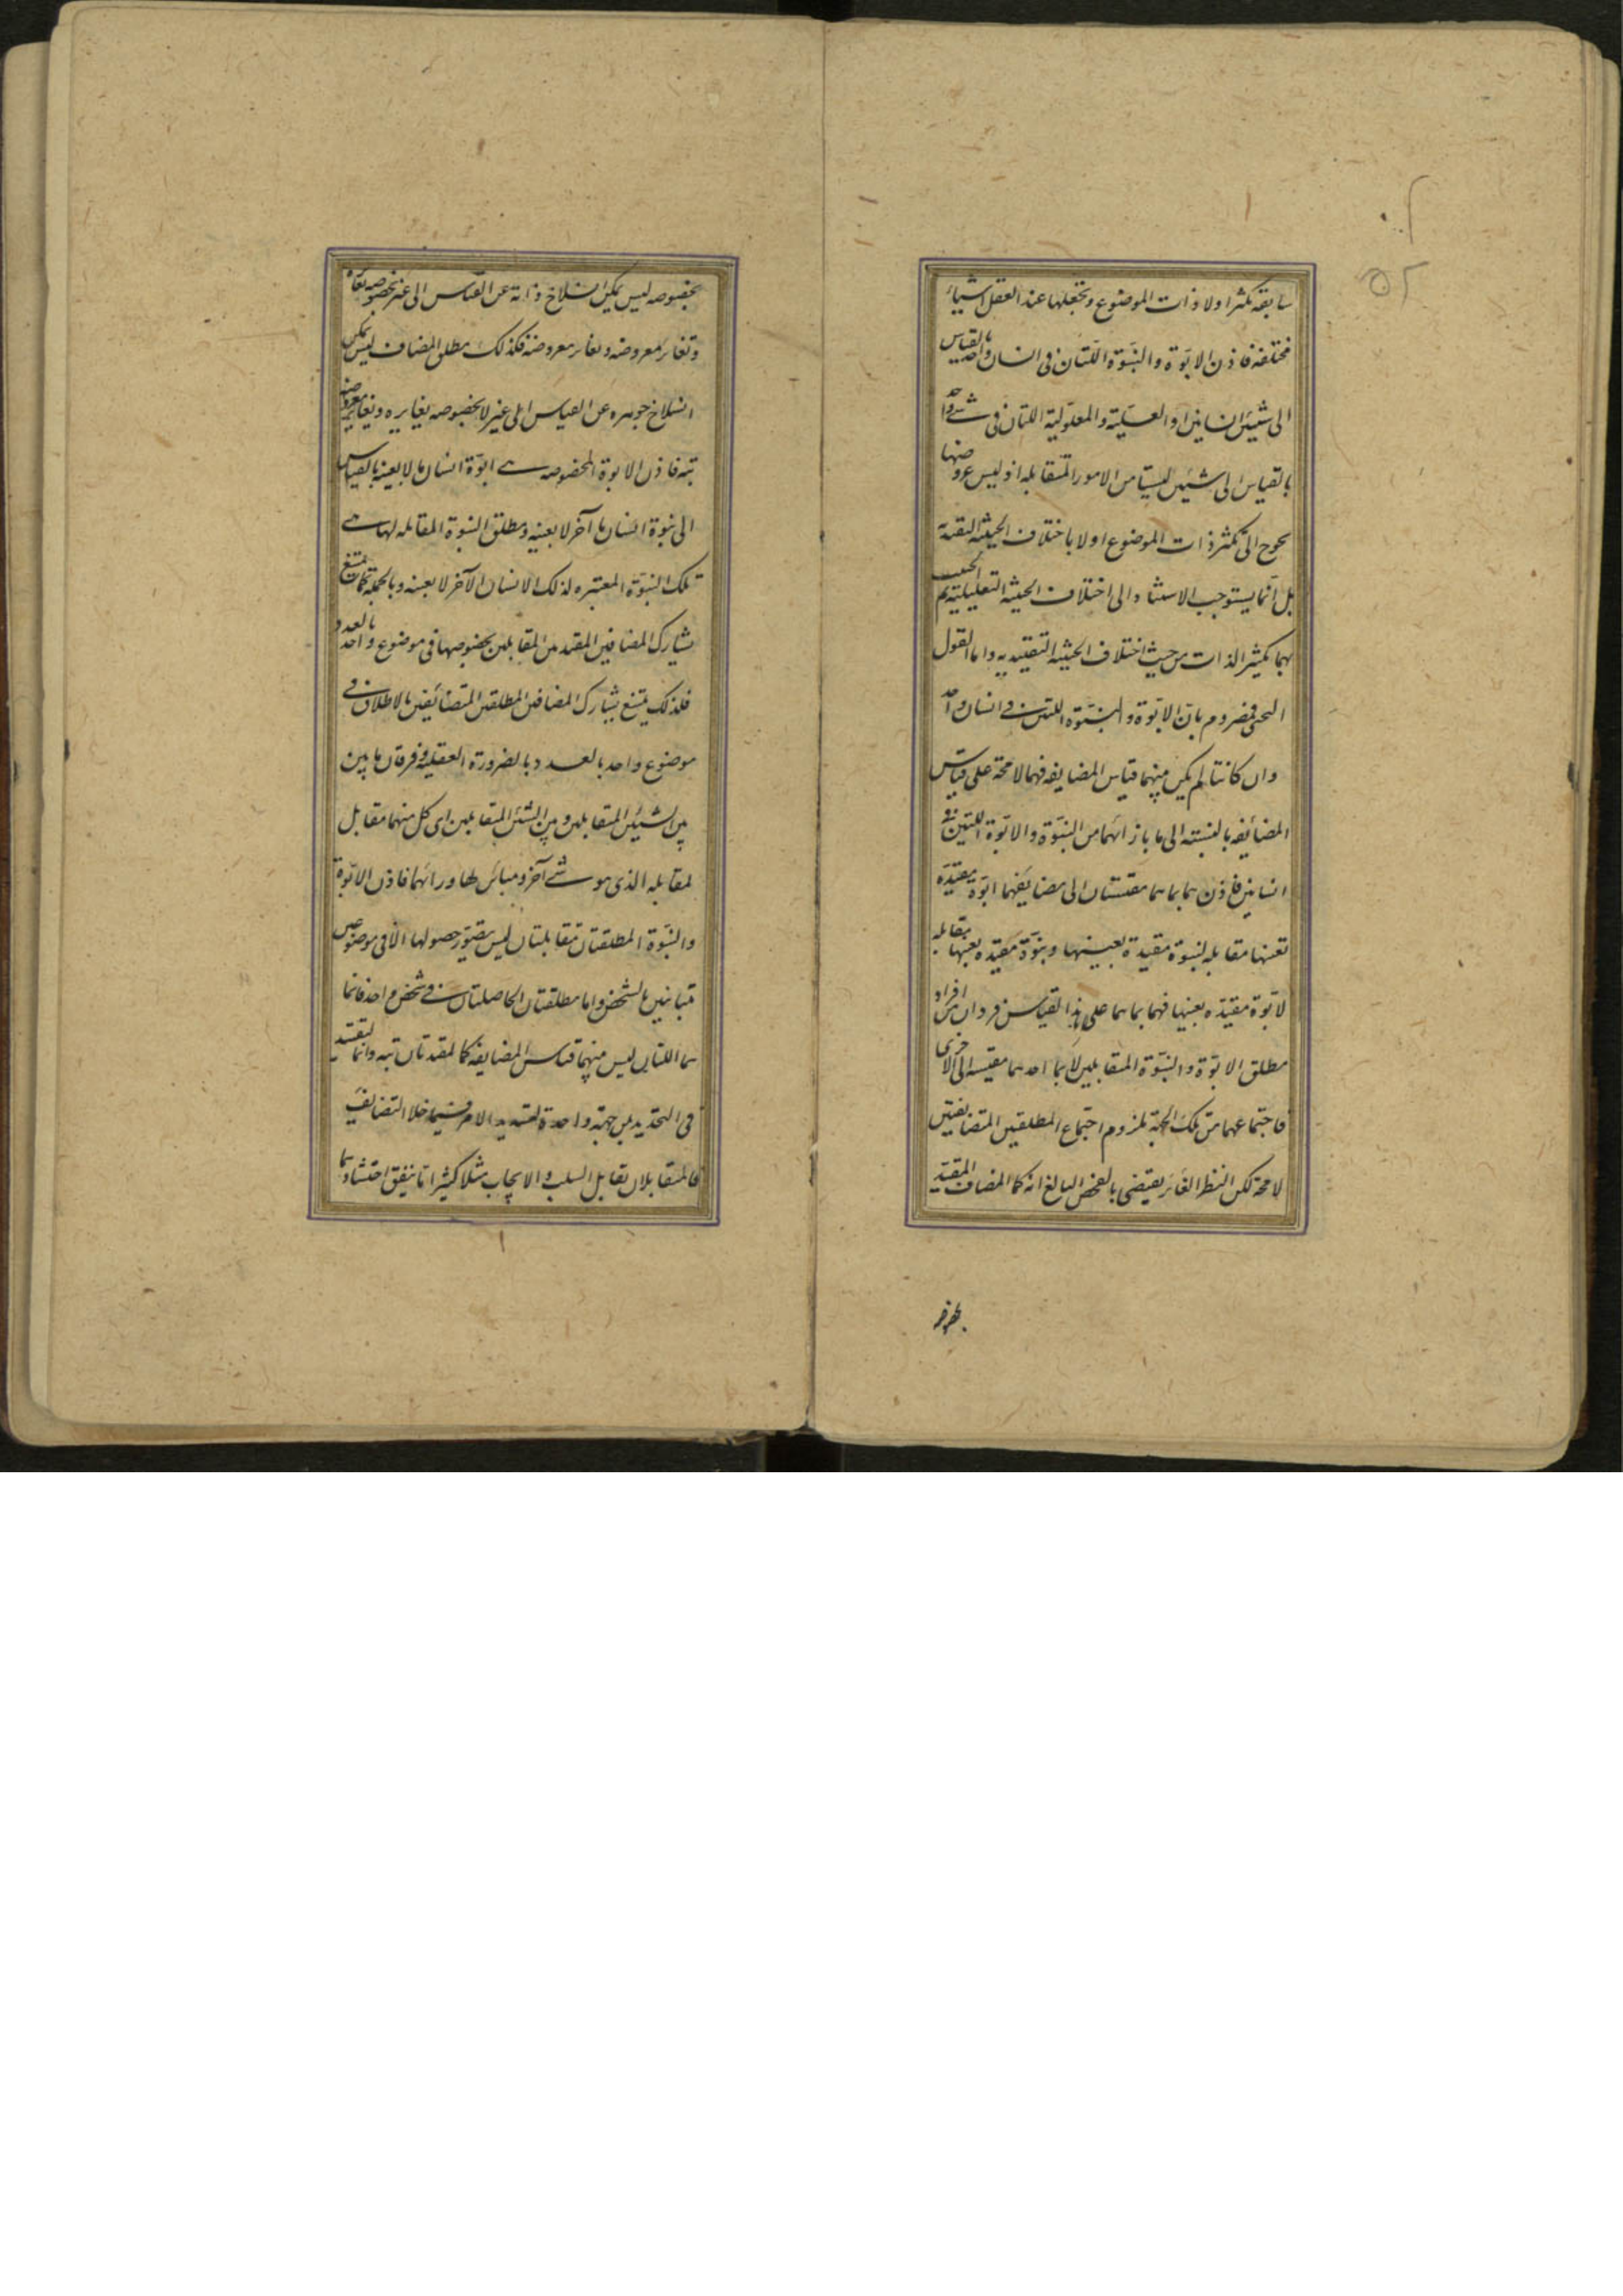 سابقة تكثر اولا ذات الموضوع وتجعلها عند العقل اشياء
مختلفة فاذن الابوّة والبنوّة اللتان فى انسان واحد بالقياس
الى شيئين انسانين او العلية والمعلولية اللتان فى شئ واحد
بالقياس الى شيئين ليستا من الامور المتقابله اذ ليس عروضهما
يحوج الى تكثر ذات الموضوع اولا باختلاف الحيثية التقييدية
بل انما يستوجب الاستناد الى اختلاف الحيثية التعليلية ثم
بهما تكثير الذات من حيث اختلاف الحيثية التقييديه واما القول
بان الابوّة والبنوّة اللتين فى انسان واحد
وان كانتا لم يكن بينهما قياس المضايفه فهما لا محة على قياس
المضائفه بالنسبة الى ما بازائهما من البنوّة والابوّة اللتين فى
انسانين فاذن هما بما هما مقيستان الى مضايفيهما ابوّة مقيّدة
بعينها مقابله لبنوة مقيدة بعينها وبنوّة مقيده بعينها مقابله
لابوّة مقيّده بعينها فهما بما هما على هذا القياس فردان من افراد
مطلق الابوّة والبنوّة المتقابلين لا بما احدهما مقيسه الى الاخرى
فاجتماعهما من تلك الجهة ملزوم اجتماع المطلقين المتضايفين
لا محة لكن النظر الغائر يقتضى بالفحص البالغ انه كما المضاف المقيّد
بخصوصه
بخصوصه ليس يمكن انسلاخ ذاته عن القياس الى غير بخصوصه
وتغاير معروضه معروضه فكذلك مطلق المضاف ليس يمكن
انسلاخ جوهره عن القياس الى غير لا بخصوصه يغايره ويغاير معروضه
تبه فاذن الابوة المخصوصه هى ابوّة انسان ما لا بعينه بالقياس
الى بنوة انسان ما آخر لا بعينه ومطلق البنوة المقابله لها هى
تلك البنوّة المعتبره لذلك الانسان الآخر لا بعينه وبالجملة كما يمتنع
تشارك المضافين المقيدين المتقابلين بخصوصهما فى موضوع واحد بالعدد
فكذلك يمتنع تشارك المضافين المطلقين المتضائفين بالاطلاق فى
موضوع واحد بالعدد بالضرورة العقلية وفرقان ما بين
بين الشيئين المتقابلين وبين الشيئين المتقابلين اى كل منهما مقابل
لمقابله الذى هو شئ آخر ومباين لها ورائهما فاذن الابوّة
والبنوّة المطلقتان متقابلتان ليس يتصوّر حصولهما الا فى موضوعين
متباينين بالشخص واما مطلقتان الحاصلتان فى شخص واحد فانما
هما اللتان ليس بينهما قياس المضايفه كالمقيدتان تبه وانما
فى التحديد من جهة واحدة لتسديد الامر فيما خلا التضايف
فالمتقابلان تقابل السلب والايجاب مثلا كثيرا ما يتفق